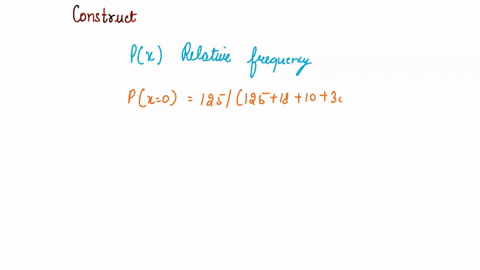 Construct
P(x) Relative frequency
P(x=0) = 125/(125+18+10+30